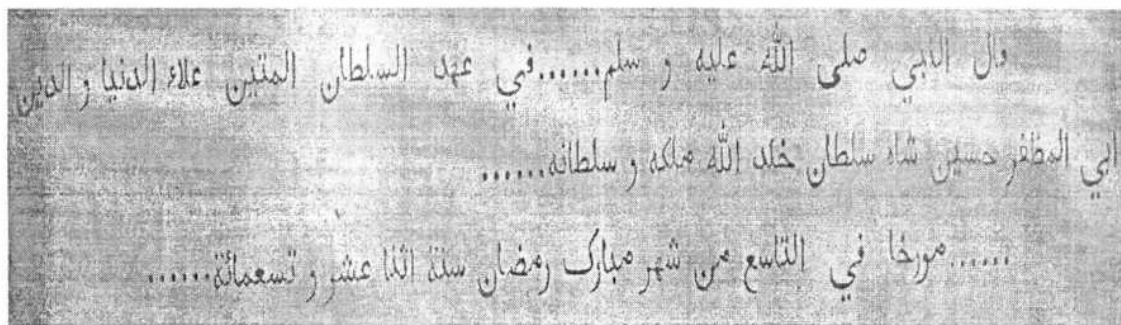 قال النبي صلى الله عليه و سلم......في عهد السلطان المتين علاء الدنيا و الدين
ابي المظفر حسين شاه سلطان خلد الله ملكه و سلطانه......
......مورخا في التاسع من شهر مبارك رمضان سنة اثنا عشر و تسعمائة......